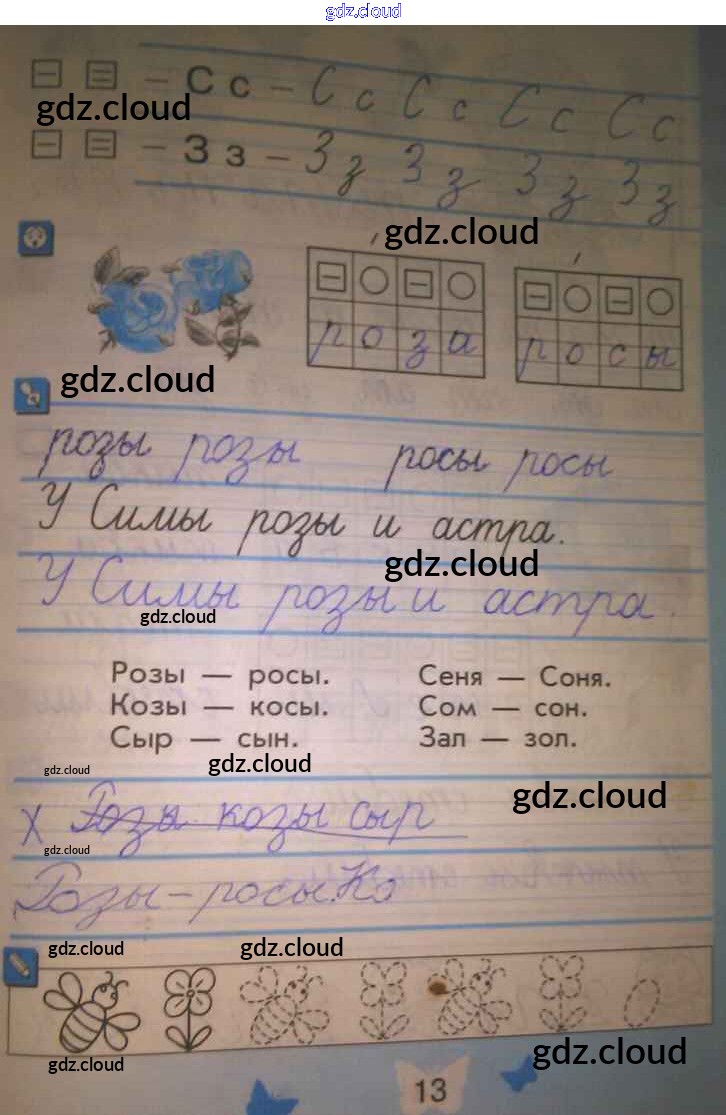 gdz.cloud
– С с – С с С с С с С с
gdz.cloud
– З з – З з З з З з З з
gdz.cloud
р о з а
р о с ы
gdz.cloud
розы розы росы росы
У Симы розы и астра.
gdz.cloud
У Симы розы и астра.
gdz.cloud
Розы — росы. Сеня — Соня.
Козы — косы. Сом — сон.
Сыр — сын. Зал — зол.
gdz.cloud
gdz.cloud
gdz.cloud
Розы козы сыр
gdz.cloud
Розы – росы. Ко
gdz.cloud
gdz.cloud
gdz.cloud
gdz.cloud
13